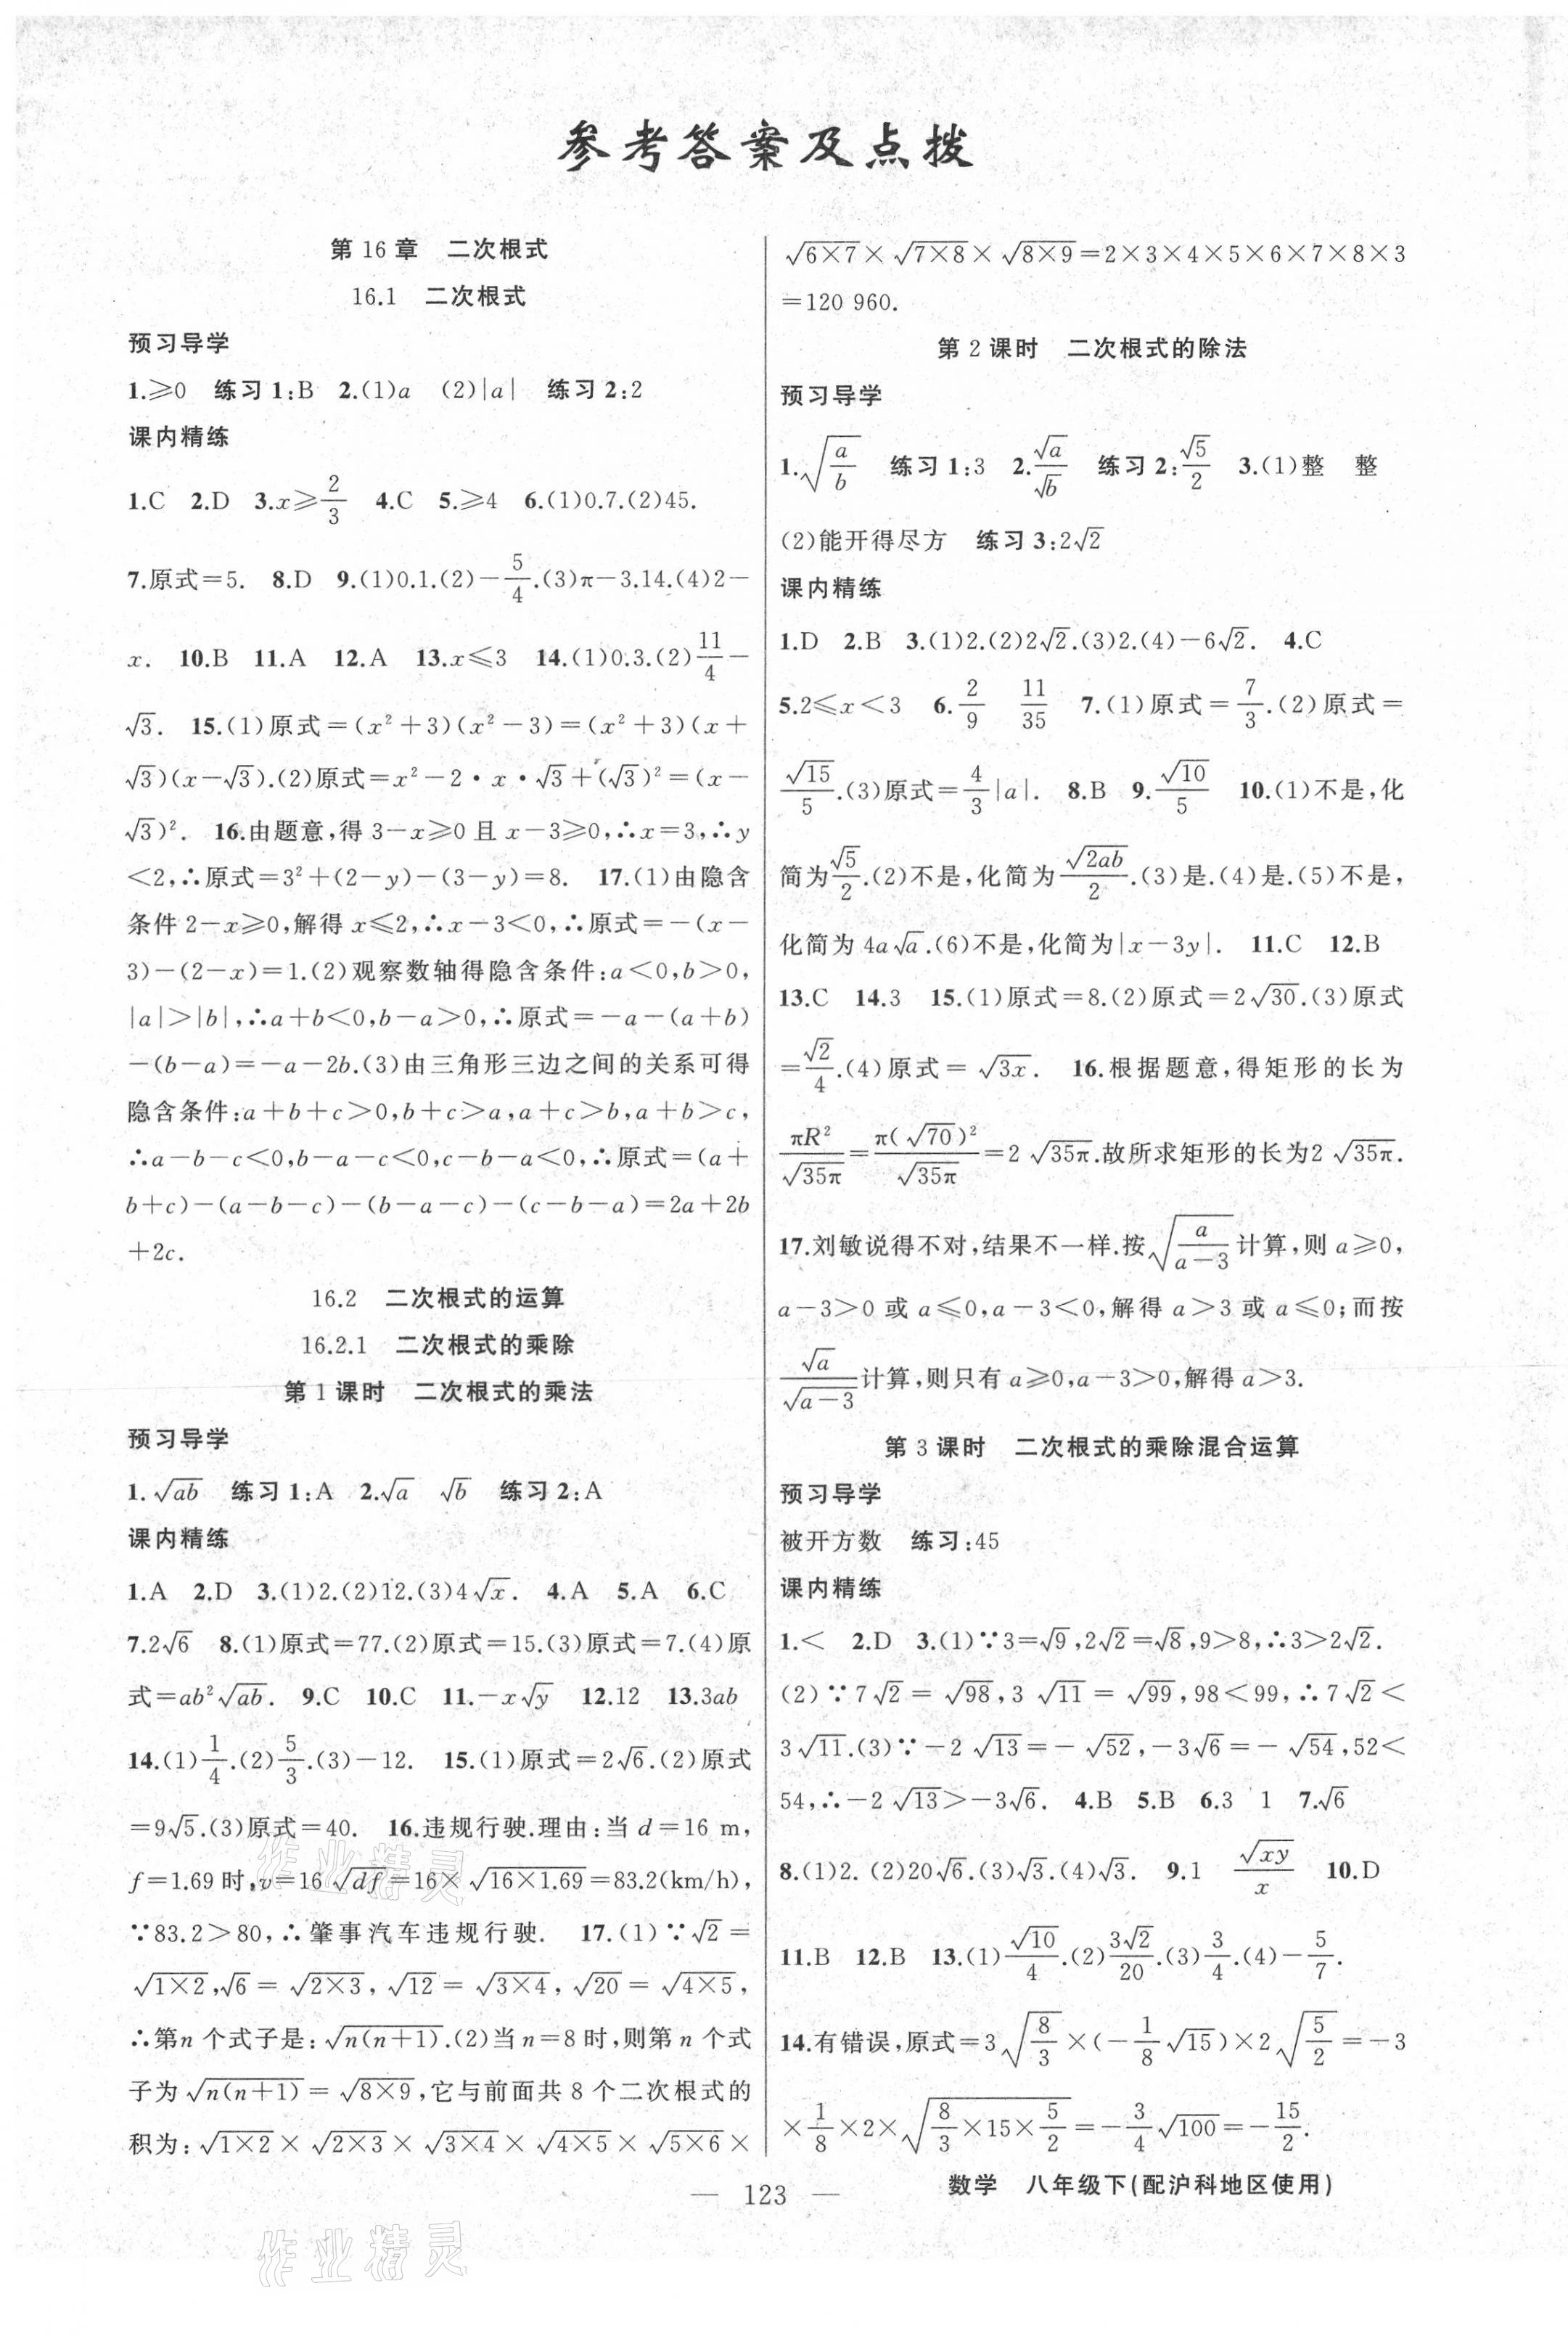 参考答案及点拨
第16章 二次根式
16.1 二次根式
预习导学
1.≥0 练习1:B 2.(1)a (2)|a| 练习2:2
课内精练
1.C 2.D 3.x≥2/3 4.C 5.≥4 6.(1)0.7.(2)45.
7.原式=5. 8.D 9.(1)0.1.(2)-5/4.(3)π-3.14.(4)2-
x. 10.B 11.A 12.A 13.x≤3 14.(1)0.3.(2)11/4-
√3. 15.(1)原式=(x²+3)(x²-3)=(x²+3)(x+
√3)(x-√3).(2)原式=x²-2·x·√3+(√3)²=(x-
√3)². 16.由题意,得3-x≥0且x-3≥0,∴x=3,∴y
<2,∴原式=3²+(2-y)-(3-y)=8. 17.(1)由隐含
条件2-x≥0,解得x≤2,∴x-3<0,∴原式=-(x-
3)-(2-x)=1.(2)观察数轴得隐含条件:a<0,b>0,
|a|>|b|,∴a+b<0,b-a>0,∴原式=-a-(a+b)
-(b-a)=-a-2b.(3)由三角形三边之间的关系可得
隐含条件:a+b+c>0,b+c>a,a+c>b,a+b>c,
∴a-b-c<0,b-a-c<0,c-b-a<0,∴原式=(a+
b+c)-(a-b-c)-(b-a-c)-(c-b-a)=2a+2b
+2c.
16.2 二次根式的运算
16.2.1 二次根式的乘除
第1课时 二次根式的乘法
预习导学
1.√(ab) 练习1:A 2.√a √b 练习2:A
课内精练
1.A 2.D 3.(1)2.(2)12.(3)4√x. 4.A 5.A 6.C
7.2√6 8.(1)原式=77.(2)原式=15.(3)原式=7.(4)原
式=ab²√(ab). 9.C 10.C 11.-x√y 12.12 13.3ab
14.(1)1/4.(2)5/3.(3)-12. 15.(1)原式=2√6.(2)原式
=9√5.(3)原式=40. 16.违规行驶.理由:当d=16 m,
f=1.69时,v=16√(df)=16×√(16×1.69)=83.2(km/h),
∵83.2>80,∴肇事汽车违规行驶. 17.(1)∵√2=
√(1×2),√6=√(2×3),√12=√(3×4),√20=√(4×5),
∴第n个式子是:√(n(n+1)).(2)当n=8时,则第n个式
子为√(n(n+1))=√(8×9),它与前面共8个二次根式的
积为:√(1×2)×√(2×3)×√(3×4)×√(4×5)×√(5×6)×
√(6×7)×√(7×8)×√(8×9)=2×3×4×5×6×7×8×3
=120 960.
第2课时 二次根式的除法
预习导学
1.√(a/b) 练习1:3 2.√a/√b 练习2:√5/2 3.(1)整 整
(2)能开得尽方 练习3:2√2
课内精练
1.D 2.B 3.(1)2.(2)2√2.(3)2.(4)-6√2. 4.C
5.2≤x<3 6.2/9 11/35 7.(1)原式=7/3.(2)原式=
√15/5.(3)原式=4/3|a|. 8.B 9.√10/5 10.(1)不是,化
简为√5/2.(2)不是,化简为√(2ab)/2.(3)是.(4)是.(5)不是,
化简为4a√a.(6)不是,化简为|x-3y|. 11.C 12.B
13.C 14.3 15.(1)原式=8.(2)原式=2√30.(3)原式
=√2/4.(4)原式=√(3x). 16.根据题意,得矩形的长为
πR²/√(35π)=π(√70)²/√(35π)=2√(35π).故所求矩形的长为2√(35π).
17.刘敏说得不对,结果不一样.按√(a/(a-3))计算,则a≥0,
a-3>0或a≤0,a-3<0,解得a>3或a≤0;而按
√a/√(a-3)计算,则只有a≥0,a-3>0,解得a>3.
第3课时 二次根式的乘除混合运算
预习导学
被开方数 练习:45
课内精练
1.< 2.D 3.(1)∵3=√9,2√2=√8,9>8,∴3>2√2.
(2)∵7√2=√98,3√11=√99,98<99,∴7√2<
3√11.(3)∵-2√13=-√52,-3√6=-√54,52<
54,∴-2√13>-3√6. 4.B 5.B 6.3 1 7.√6
8.(1)2.(2)20√6.(3)√3.(4)√3. 9.1 √(xy)/x 10.D
11.B 12.B 13.(1)√10/4.(2)3√2/20.(3)3/4.(4)-5/7.
14.有错误,原式=3√(8/3)×(-1/8√15)×2√(5/2)=-3
×1/8×2×√(8/3×15×5/2)=-3/4√100=-15/2.
— 123 —
数学 八年级下(配沪科地区使用)
作业精灵
作业精灵